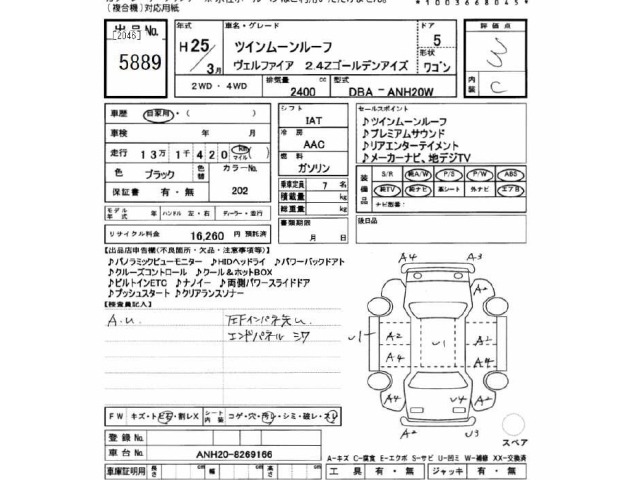 (複合機)対応用紙
*1003668045*
出品No.
[2046]
5889
年式
H25/3月
車名・グレード
ツインムーンルーフ
ヴェルファイア 2.4Zゴールデンアイズ
ドア
5
形状
ワゴン
評価点
内装
C
2WD・4WD
排気量
2400
cc
型式
DBA - ANH20W
車歴
自家用・( )
車検 年 月
走行 13万1千420 km マイル
色 ブラック
色替
カラーNo.
202
保証書 有・無
シフト
IAT
冷房
AAC
燃料
ガソリン
乗車定員 7 名
積載量 kg
総重量 kg
書類期限
月 日
セールスポイント
♪ツインムーンルーフ
♪プレミアムサウンド
♪リアエンターテイメント
♪メーカーナビ、地デジTV
装備品
S/R 純A/W P/S P/W ABS
純TV 純ナビ 革シート 外ナビ エアB
ナビ型番:
後日品
モデル年式 年 ハンドル 左・右 ディーラー・並行
リサイクル料金 16,260 円 預託済
【出品店申告欄(不良箇所・欠品・注意事項等)】
♪パノラミックビューモニター ♪HIDヘッドライ ♪パワーバックドアト
♪クルーズコントロール ♪クール&ホットBOX
♪ビルトインETC ♪ナノイー ♪両側パワースライドドア
♪プッシュスタート ♪クリアランスソナー
【検査員記入】
A.U.
エンドパネル
A4 A3
A2
A2 A2
U1 U1 A1
A4 A4
A2 U4 A2
A2 U3
スペア
FW キズ・トビ石・割レX
シート内装 コゲ・穴・汚レ・シミ・破レ・スレ
登録No.
車台No. ANH20-8269166
A-キズ C-腐食 E-エクボ S-サビ U-凹ミ W-補修 XX-交換済
車庫証明用 長さ cm 幅 cm 高さ cm
工具 有・無 ジャッキ 有・無